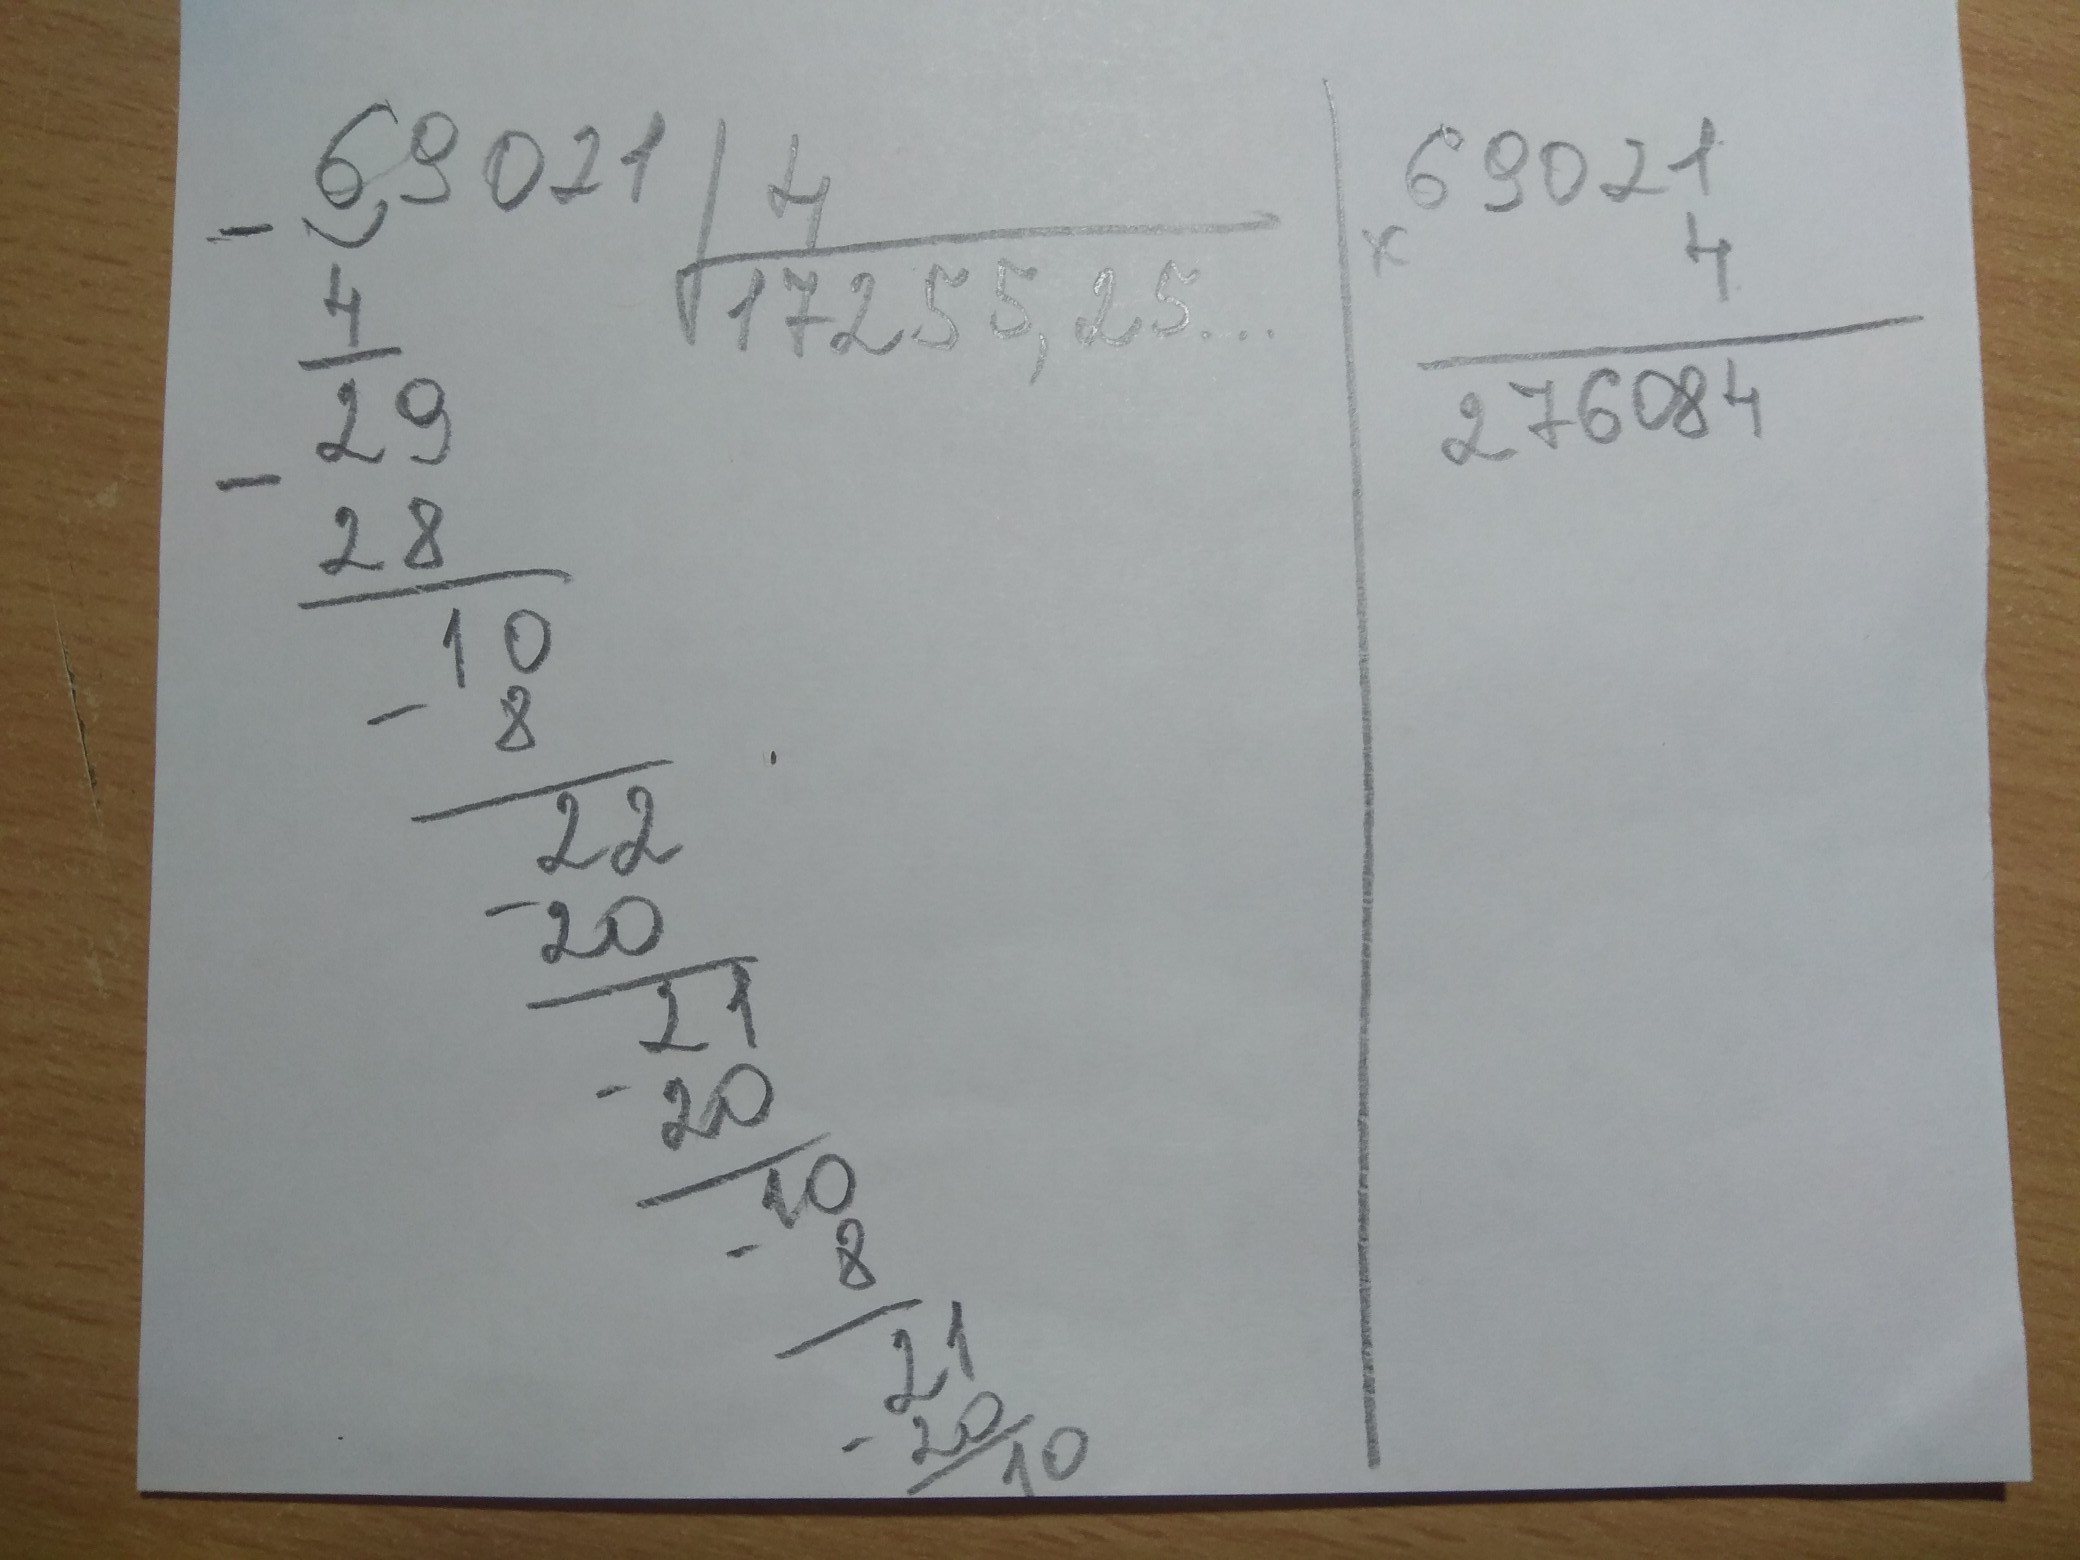 69021 4
- 17255,25...
4
29
-
28
10
- 8
22
- 20
21
- 20
10
- 8
21
- 20
10
69021
x 4
276084